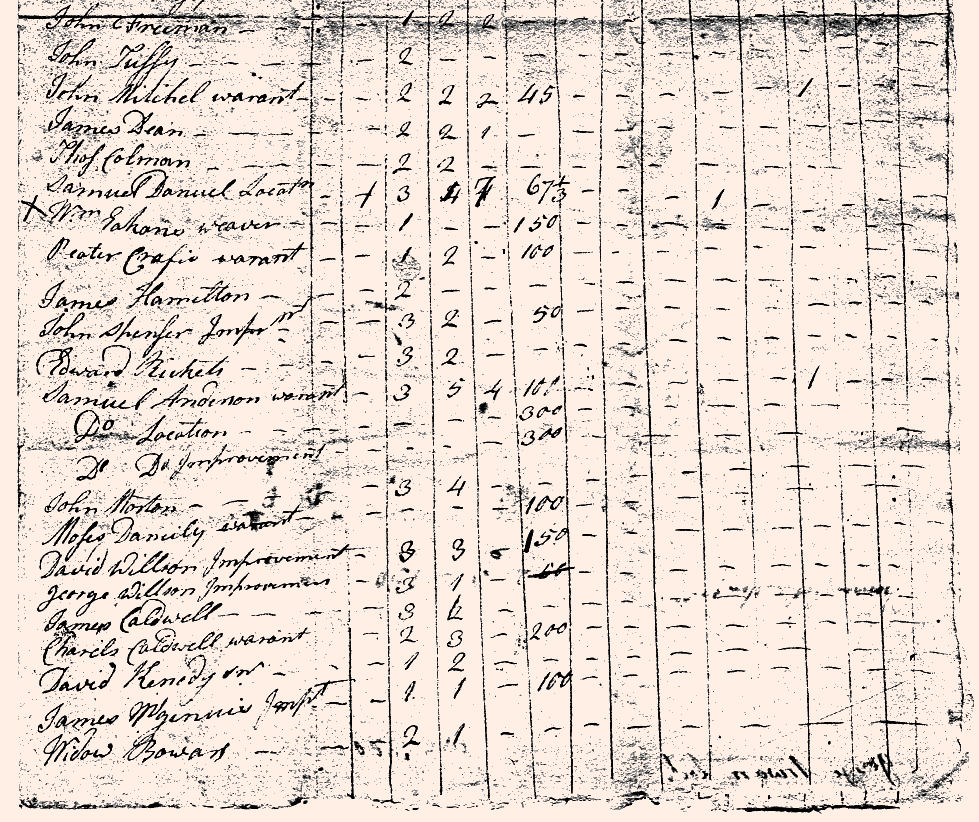 John C Freeman — — — 1 2 2
John Tuffy — — 2 —
John Mitchel warant — — 2 2 2 45 — — — — 1 — —
James Dean — — — — 2 2 1 — — —
Thos Colman — — — — 2 2 — — —
Samuel Danuel Locatn — 1 3 4 7 67 1/3 — — — 1
X Wm weaver — — 1 — — 150
Peater warant — — 1 2 — 100
James Hamilton — — — 2 — — —
John Spenser Impr — — 3 2 — 50
Edward Rickets — — — 3 2 — —
Samuel Anderson warant — 3 5 4 100 — — — — — 1
Do Location — — — — — — 300
Do Do Improvement — — — — — 300
John Norton — — — 3 4 — —
Moses Damily warant — — — — — 100
David Willson Improvement — 3 3 — 150
George Willson Improvement — 3 1 —
James Caldwell — — — 3 4 — —
Charels Caldwell warant — — 2 3 — 200
David Kenedy — — 1 2 — —
James Impt — — 1 1 — 100
Widow Bowan — — 2 1 — —